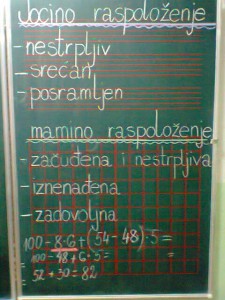 Jocino raspoloženje
- nestrpljiv
- srećan
- posramljen
mamino raspoloženje
- začuđena i nestrpljiva
- iznenađena
- zadovoljna
100 - 8·6 + (54 - 48)·5 =
= 100 - 48 + 6·5 = =
= 52 + 30 = 82